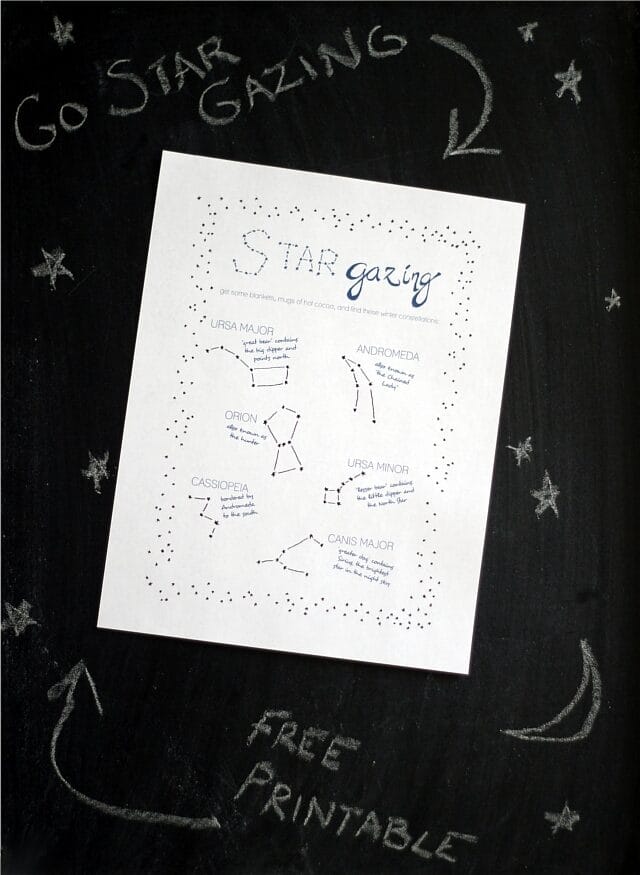 GO STAR
GAZING
STAR gazing
get some blankets, mugs of hot cocoa, and find these winter constellations:
URSA MAJOR
"great bear" contains
the big dipper and
points north
ANDROMEDA
also known as
"the Chained
Lady"
ORION
also known as
the hunter
URSA MINOR
"lesser bear" contains
the little dipper and
the North Star
CASSIOPEIA
bordered by
Andromeda
to the south
CANIS MAJOR
greater dog contains
Sirius the brightest
star in the night sky
FREE
PRINTABLE